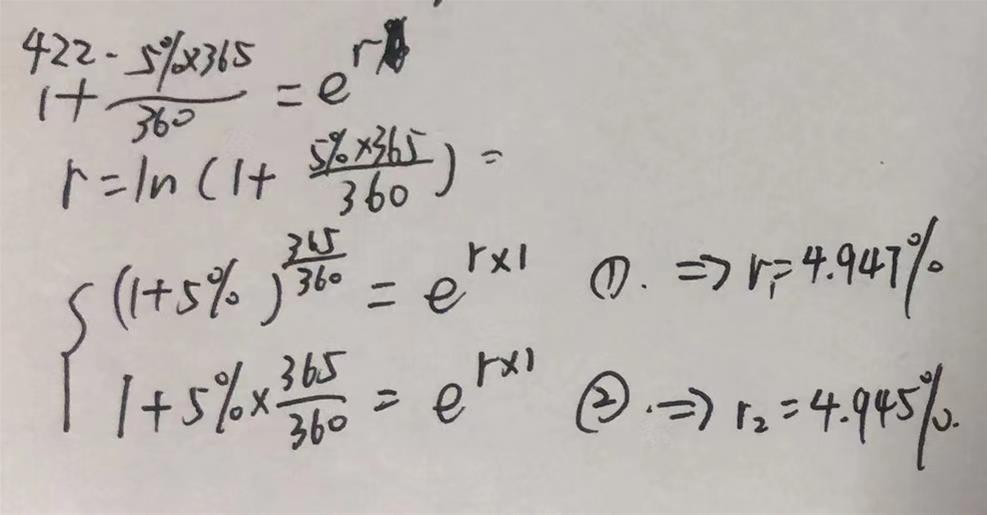 422- 5%×365
1+ ―― = e^r
360
r = ln (1+ 5%×365/360) =
(1+5%)^(365/360) = e^(r×1) ①. ⇒ r₁=4.947%
1+5%×365/360 = e^(r×1) ②. ⇒ r₂=4.945%.